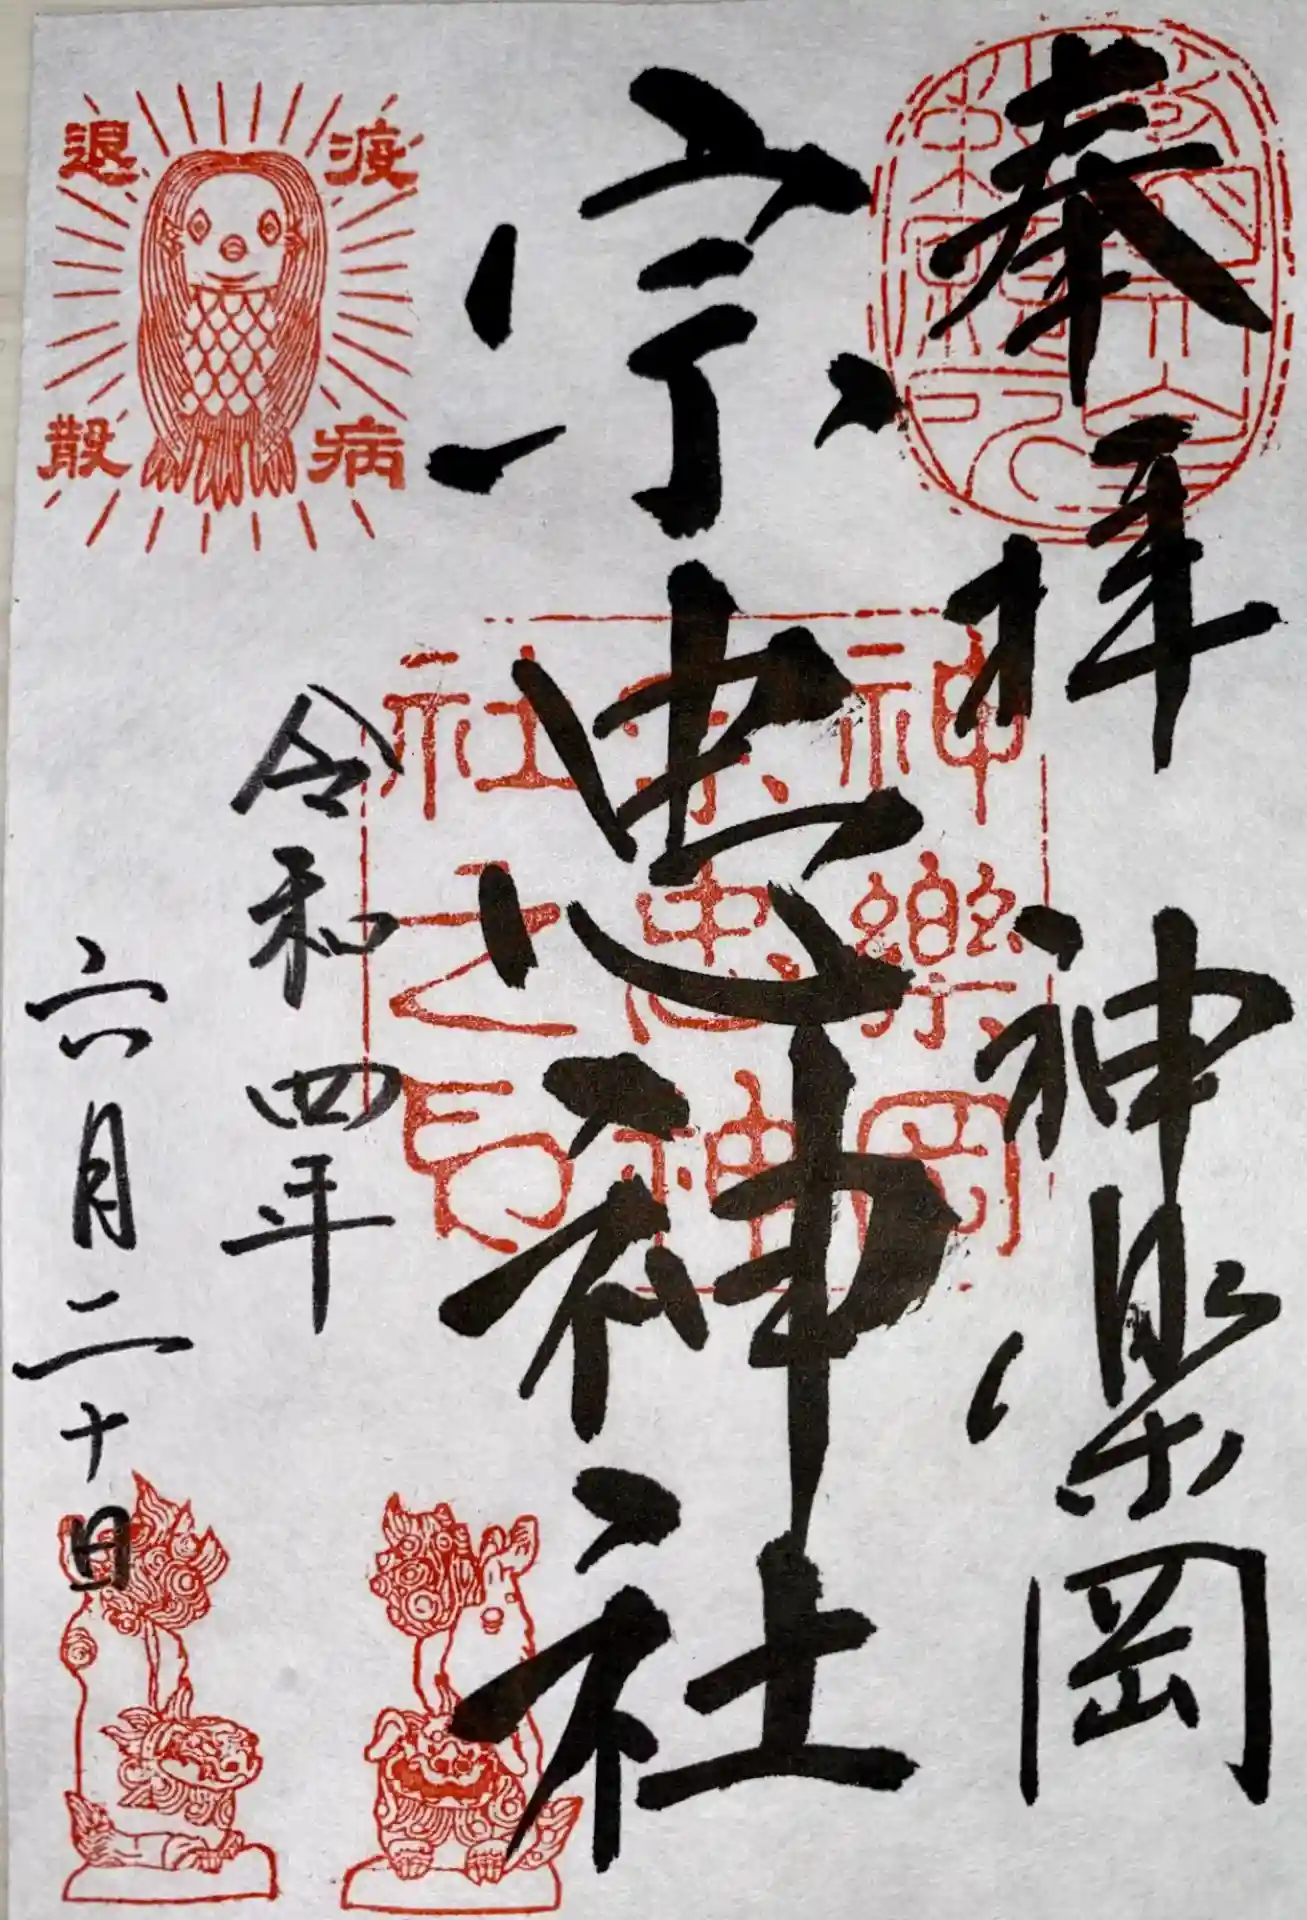 奉拝 神楽岡
宗忠神社
令和四年
六月二十日
神楽岡
宗忠神
社之印
疫病
退散